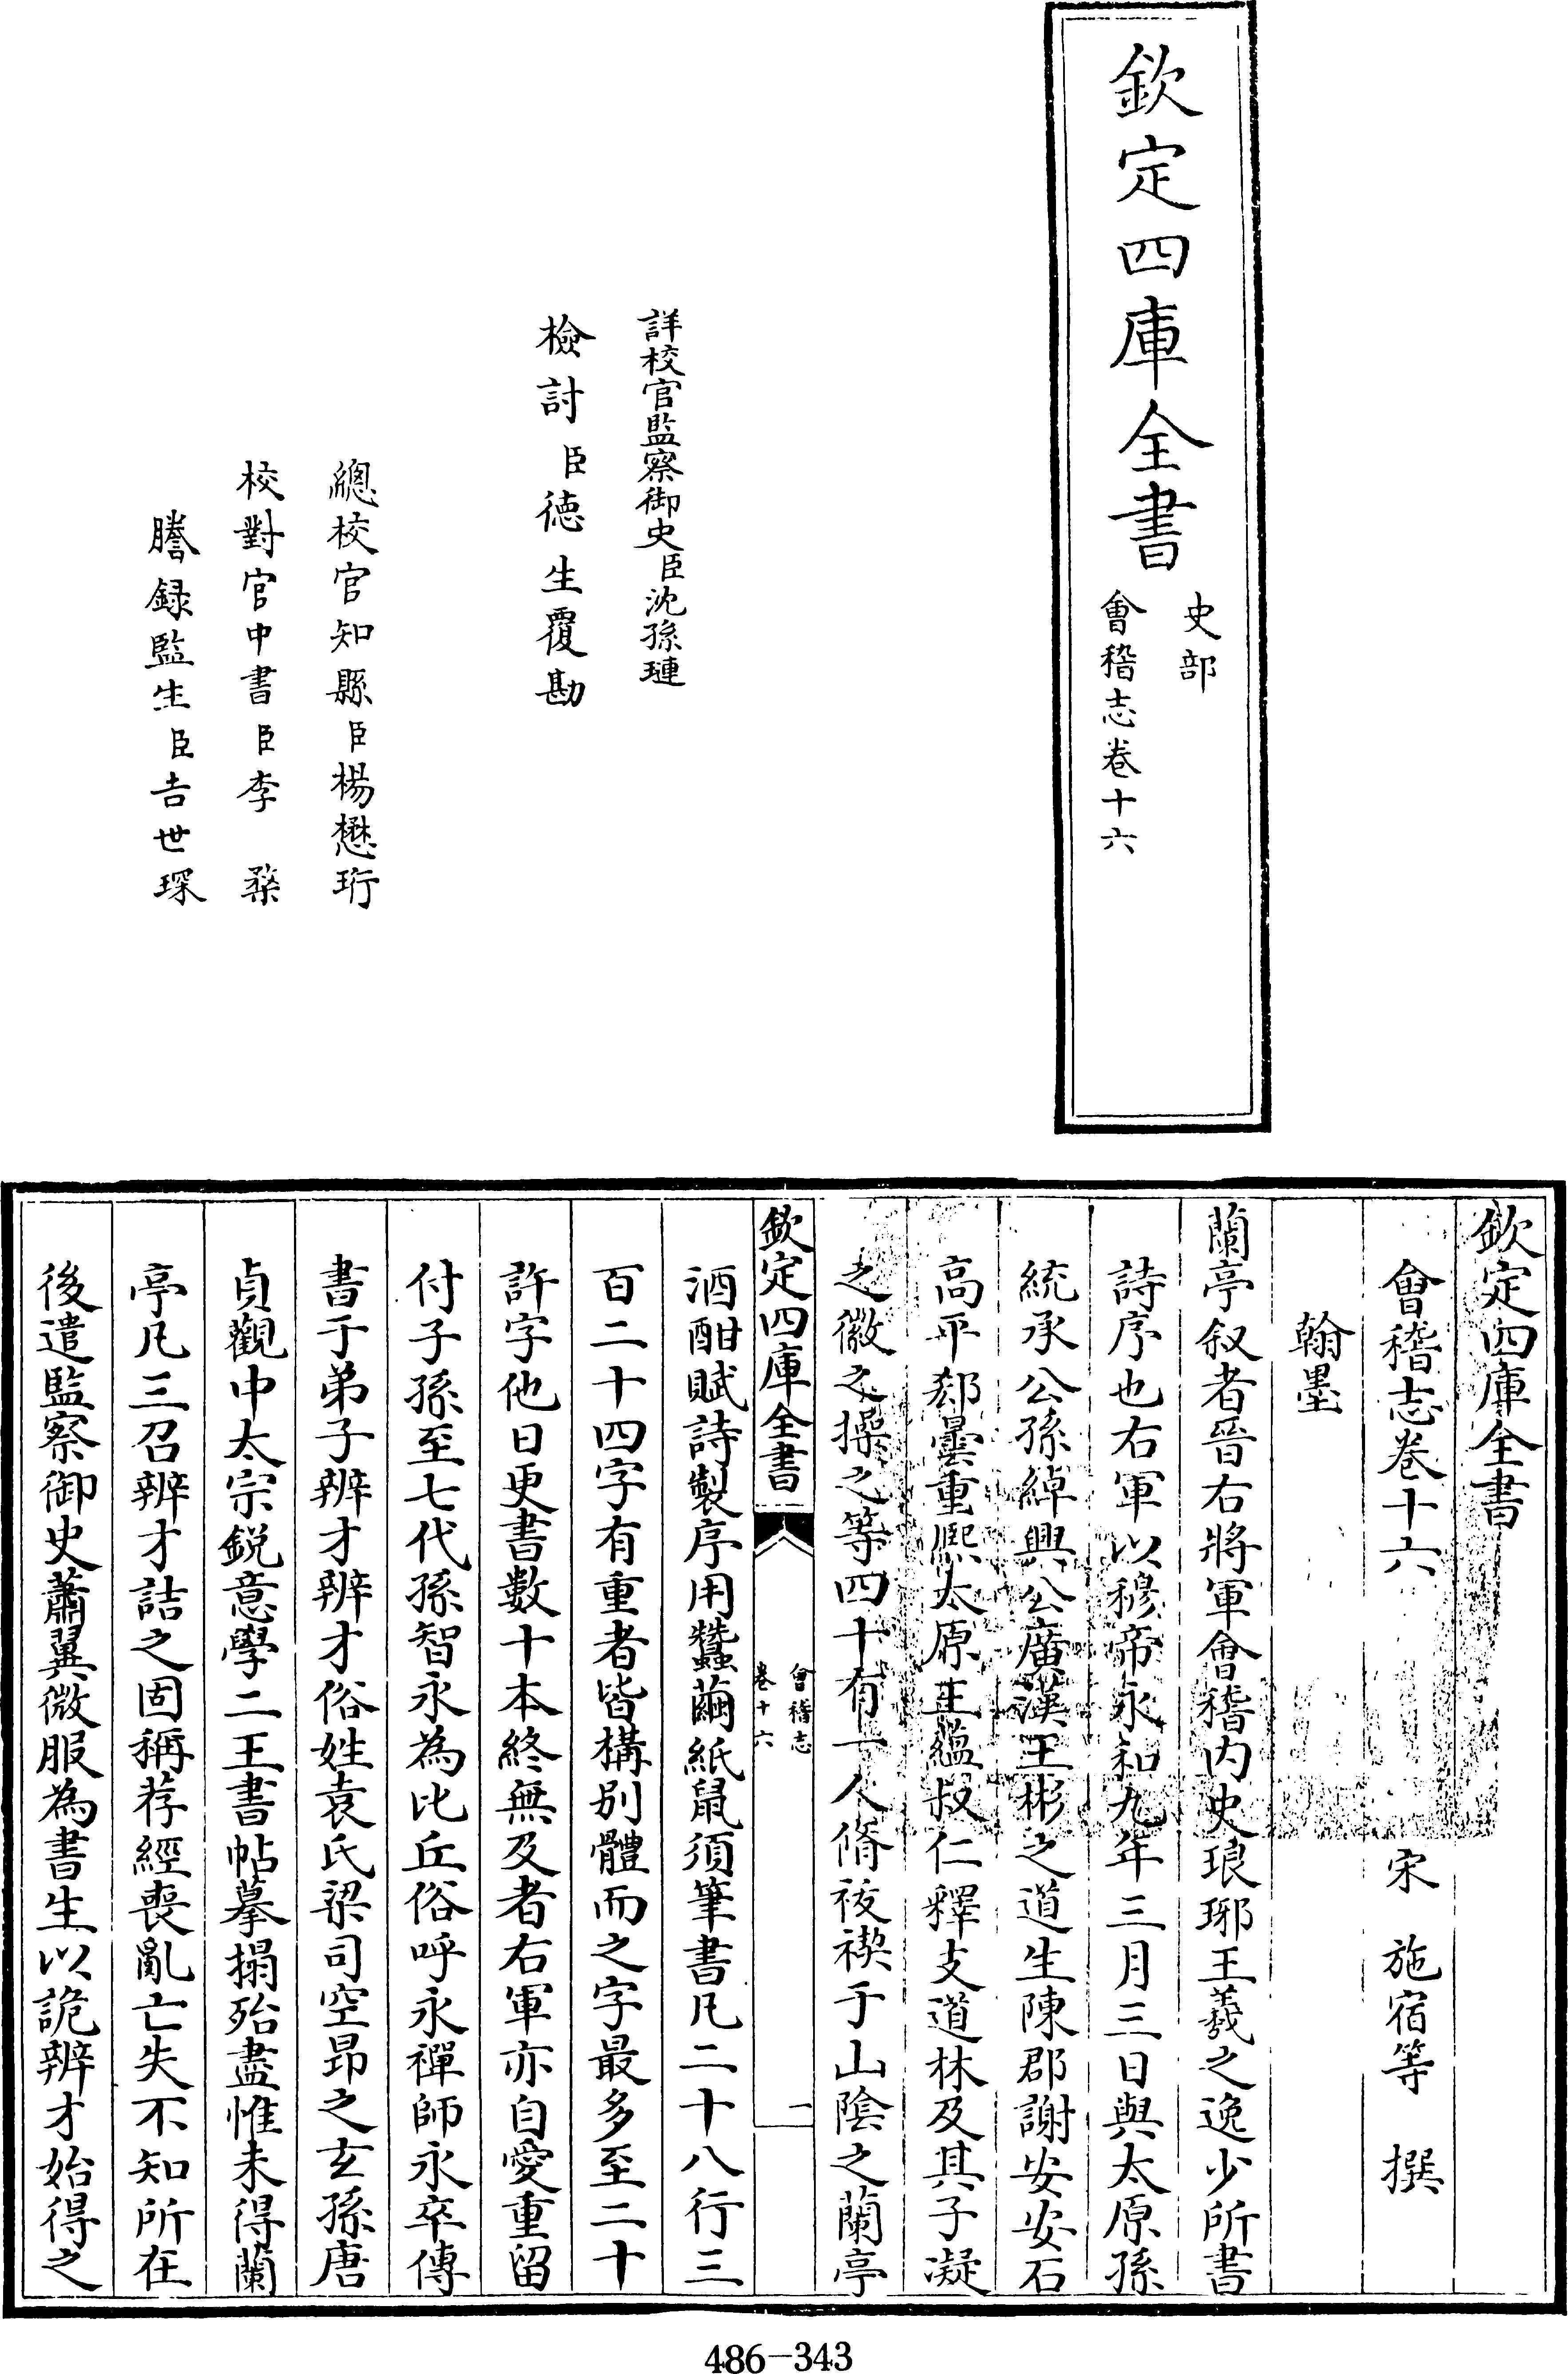 欽定四庫全書
史部
會稽志卷十六
詳校官監察御史臣沈孫璉
檢討臣德生覆勘
總校官知縣臣楊懋珩
校對官中書臣李 粲
謄録監生臣吉世琛
欽定四庫全書
會稽志卷十六
宋 施宿等 撰
翰墨
蘭亭叙者晉右將軍會稽内史琅琊王羲之逸少所書
詩序也右軍以穆帝永和九年三月三日與太原孫
統承公孫綽興公廣漢王彬之道生陳郡謝安安石
高平郄曇重熙太原王蘊叔仁釋支道林及其子凝
之徽之操之等四十有一人脩祓禊于山陰之蘭亭
欽定四庫全書
會稽志
卷十六
一
酒酣賦詩製序用蠶繭紙鼠須筆書凡二十八行三
百二十四字有重者皆構别體而之字最多至二十
許字他日更書數十本終無及者右軍亦自愛重留
付子孫至七代孫智永為比丘俗呼永禪師永卒傳
書于弟子辨才辨才俗姓袁氏梁司空昂之玄孫唐
貞觀中太宗鋭意學二王書帖摹搨殆盡惟未得蘭
亭凡三召辨才詰之固稱荐經喪亂亡失不知所在
後遣監察御史蕭翼微服為書生以詭辨才始得之
486-343